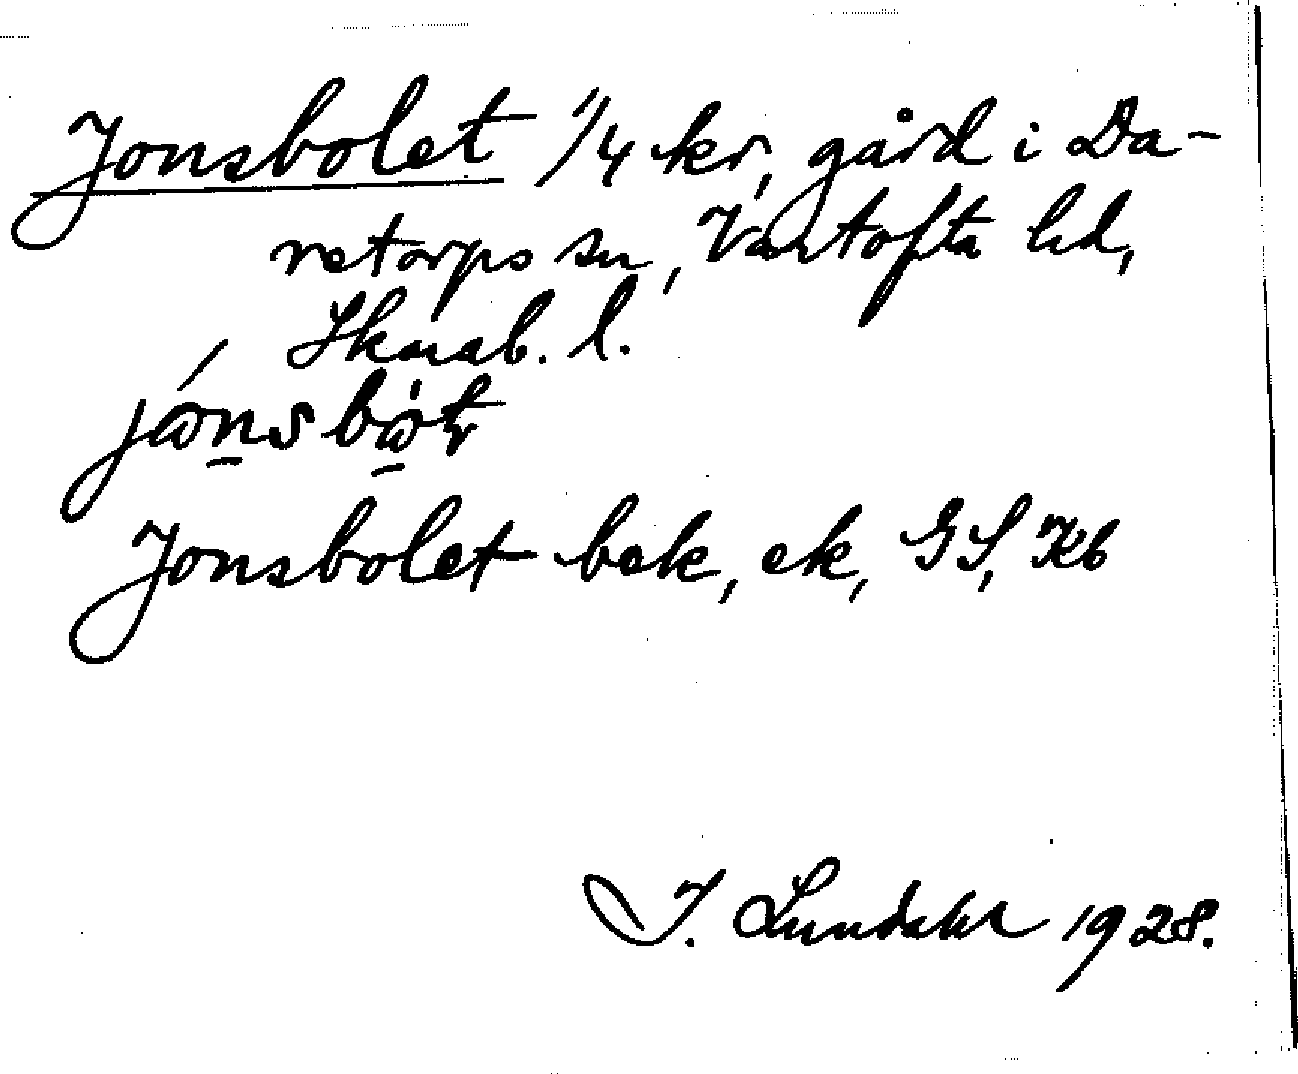 Jonsbolet 1/4 kr, gård i Da-
retorps sn, Vartofta hd,
Skarab. l.
Jonsbolet bek, ek, GS, Kb
I. Lundahl 1928.